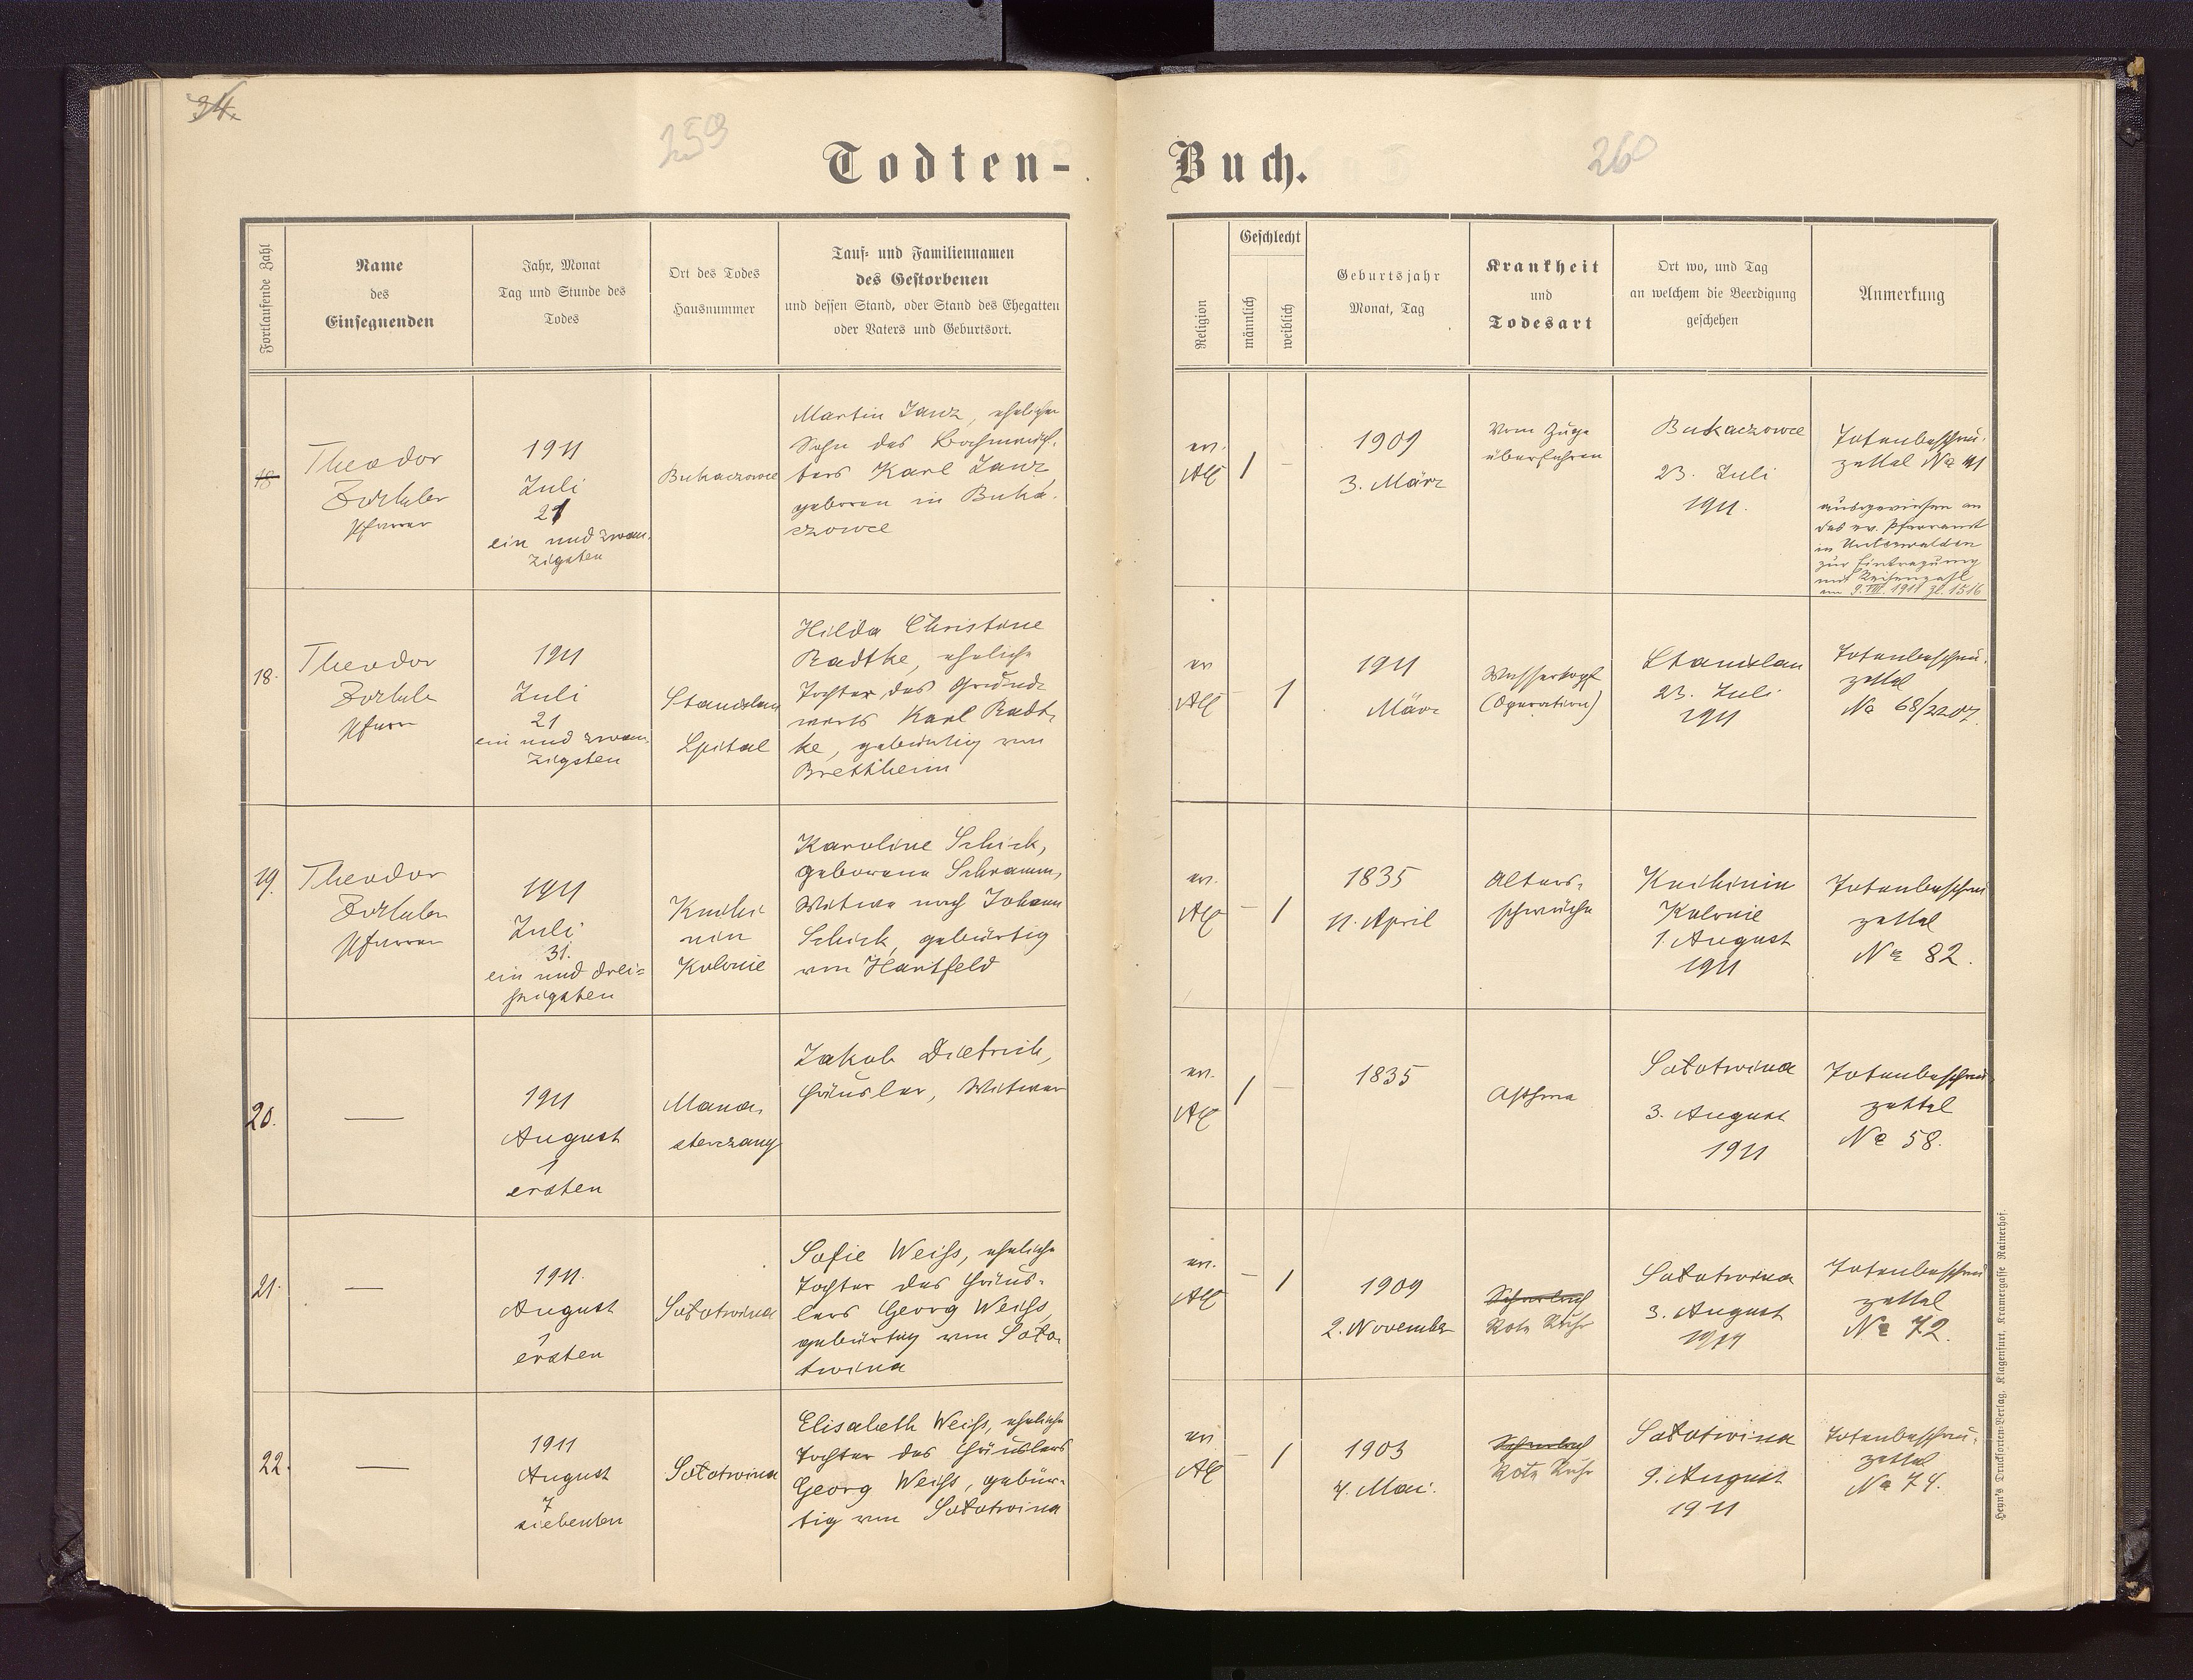 34.
259
Todten-
Buch.
260
Fortlaufende Zahl
Name
des
Einsegnenden
Jahr, Monat
Tag und Stunde des
Todes
Ort des Todes
Hausnummer
Tauf- und Familiennamen
des Gestorbenen
und dessen Stand, oder Stand des Ehegatten
oder Vaters und Geburtsort.
Religion
Geschlecht
männlich
weiblich
Geburtsjahr
Monat, Tag
Krankheit
und
Todesart
Ort wo, und Tag
an welchem die Beerdigung
geschehen
Anmerkung
18
Theodor
Zöckler
Pfarrer
1911
Juli
21
ein und zwan-
zigsten
Bukaczowce
Martin Janz, ehelicher
Sohn des
Karl Janz
geboren in Buka-
czowce
ev.
AC
1
–
1909
3. März
Vom Zuge
überfahren
Bukaczowce
23. Juli
1911.
Totenbeschau-
zettel No 41
ausgewiesen an
das ev. Pfarramt
in Unterwalden
zur Eintragung
mit Reihenzahl
am 9. VIII. 1911 Zl. 1516
18.
Theodor
Zöckler
Pfarrer
1911
Juli
21
ein und zwan-
zigsten
Stanislau
Spital
Hilda Christine
Radtke, eheliche
Tochter des Grund-
wirts Karl Radt-
ke, gebürtig von
Brettheim
ev
AC
–
1
1911
März
Wasserkopf
(Operation)
Stanislau
23. Juli
1911
Totenbeschau-
zettel
No 68/2207.
19.
Theodor
Zöckler
Pfarrer
1911
Juli
31.
ein und drei-
ssigsten
Knihi-
nin
Kolonie
Karoline Schick,
geborene Schramm,
Witwe nach Johann
Schick, gebürtig
von Hartfeld
ev.
AC
–
1
1835
11. April
Alters-
schwäche
Knihinin
Kolonie
1. August
1911
Totenbeschau
zettel
No 82.
20.
—
1911
August
1
ersten
Mana-
sterczany
Jakob Dietrich,
Häusler, Witwer
ev.
AC
1
–
1835
Asthma
Sołotwina
3. August
1911
Totenbeschau-
zettel
No 58.
21.
—
1911.
August
1
ersten
Sołotwina
Sofie Weiss, eheliche
Tochter des Häus-
lers Georg Weiss,
gebürtig von Soło-
twina
ev.
AC
–
1
1909
2. November
Rote Ruhr
Sołotwina
3. August
1911
Totenbeschau
zettel
No 72.
22.
—
1911
August
7
siebenten
Sołotwina
Elisabeth Weiss, eheliche
Tochter des Häuslers
Georg Weiss, gebür-
tig von Sołotwina
ev.
AC
–
1
1903
4. Mai.
Rote Ruhr
Sołotwina
9. August
1911
Totenbeschau-
zettel
No 74.
Heyn's Drucksorten-Verlag, Klagenfurt, Kramergasse Rainerhof.